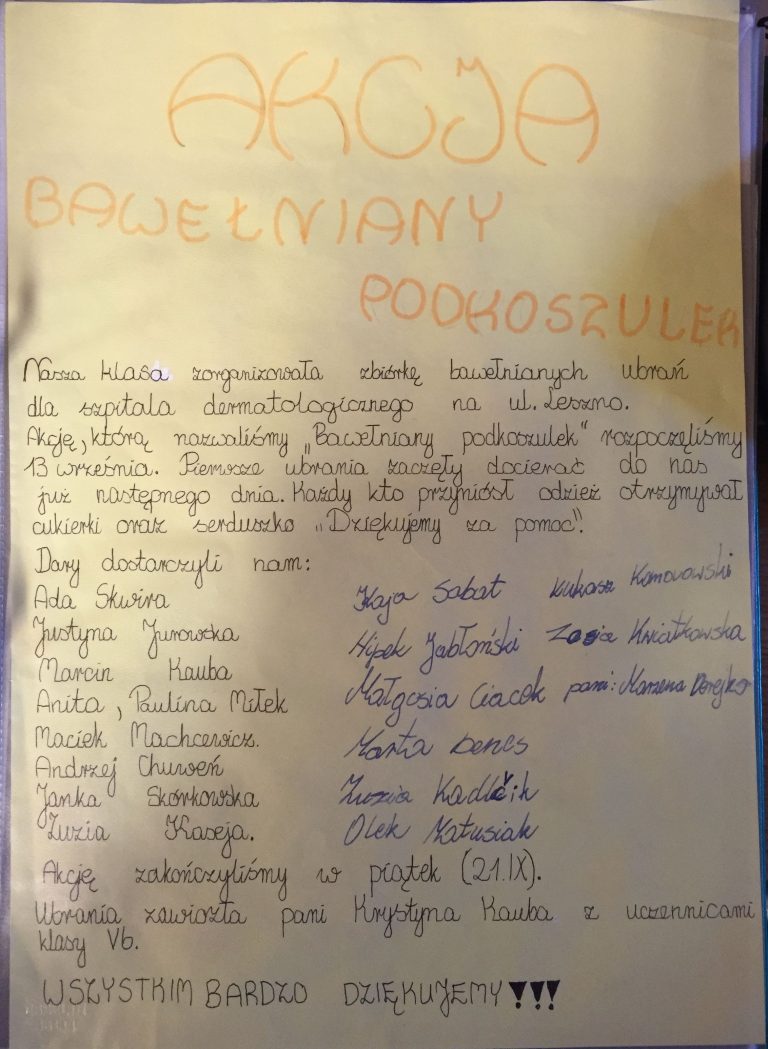 AKCJA
BAWEŁNIANY
PODKOSZULEK
Nasza klasa zorganizowała zbiórkę bawełnianych ubrań
dla szpitala dermatologicznego na ul. Leszno.
Akcję, którą nazwaliśmy „Bawełniany podkoszulek" rozpoczęliśmy
13 września. Pierwsze ubrania zaczęły docierać do nas
już następnego dnia. Każdy kto przyniósł odzież otrzymywał
cukierki oraz serduszko „Dziękujemy za pomoc".
Dary dostarczyli nam:
Ada Skwira
Justyna Jurowska
Marcin Kauba
Anita, Paulina Miłek
Maciek Machcewicz.
Andrzej Chuweń
Janka Skórkowska
Zuzia Kaseja.
Kaja Sabat
Hipek Jabłoński
Małgosia Ciacek
Marta Denes
Zuzia Kadlčik
Olek Matusiak
Łukasz Komorowski
Zosia Kwiatkowska
pani: Marzena
Akcję zakończyliśmy w piątek (21.IX).
Ubrania zawiozła pani Krystyna Kauba z uczennicami
klasy Vb.
WSZYSTKIM BARDZO DZIĘKUJEMY!!!